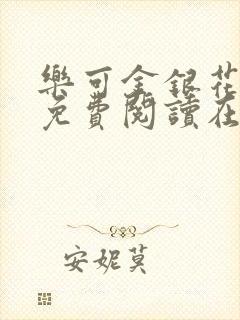 樂可金銀花
免費閱讀在
安妮莫